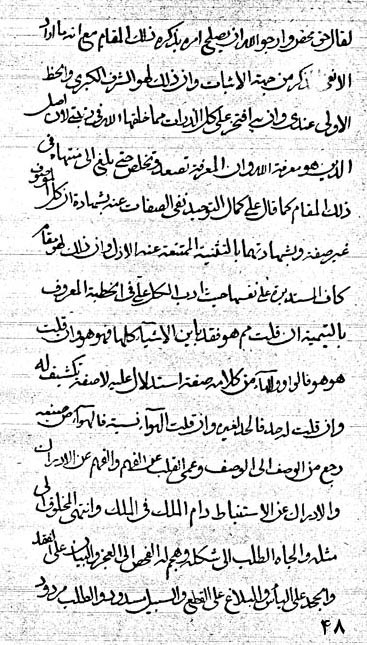 لقال حق محض وارجو الله ان يصلح امره بذكره ذلك المقام مع انه ما اراد
الا نفى ذكر من جهة الاثبات وان ذلك لهو الشرف الكبرى والحظ
الاولى عندى وان به افتخر على كل الذرات مما خلقها الله لان اصل
الدين هو معرفة الله وان المعرفة تصعد وتخلص حتى يبلغ الى منتهاه فى
ذلك المقام كما قال على كمال التوحيد نفى الصفات عنه بشهادة ان كل موصوف
غير صفة وبشهادتهما بالتثنية الممتنعة عنه الازل وان ذلك لهو مقام
كاف السندين على نفسها حيث ادب الكل على فى الخطبة المعروف
باليتيمية ان قلت مم هو فقد باين الاشياء كلها فهو هو وان قلت
هو هو فالهاء والواو من كلامه صفة استدلال عليه لا صفة تكشف له
وان قلت له حد فالحد لغيره وان قلت الهواء نسبة فالهواء من صنعه
رجع من الوصف الى الوصف وعمى القلب عن الفهم والفهم عن الادراك
والادراك عن الاستنباط دام الملك فى الملك وانتهى المخلوق الى
مثله والجاه الطلب الى شكله وهجم له الفحص الى العجز والبيان على الفقد
والجهد على الياس والبلاغ على القطع والسبيل مسدود والطلب مردود
۴۸